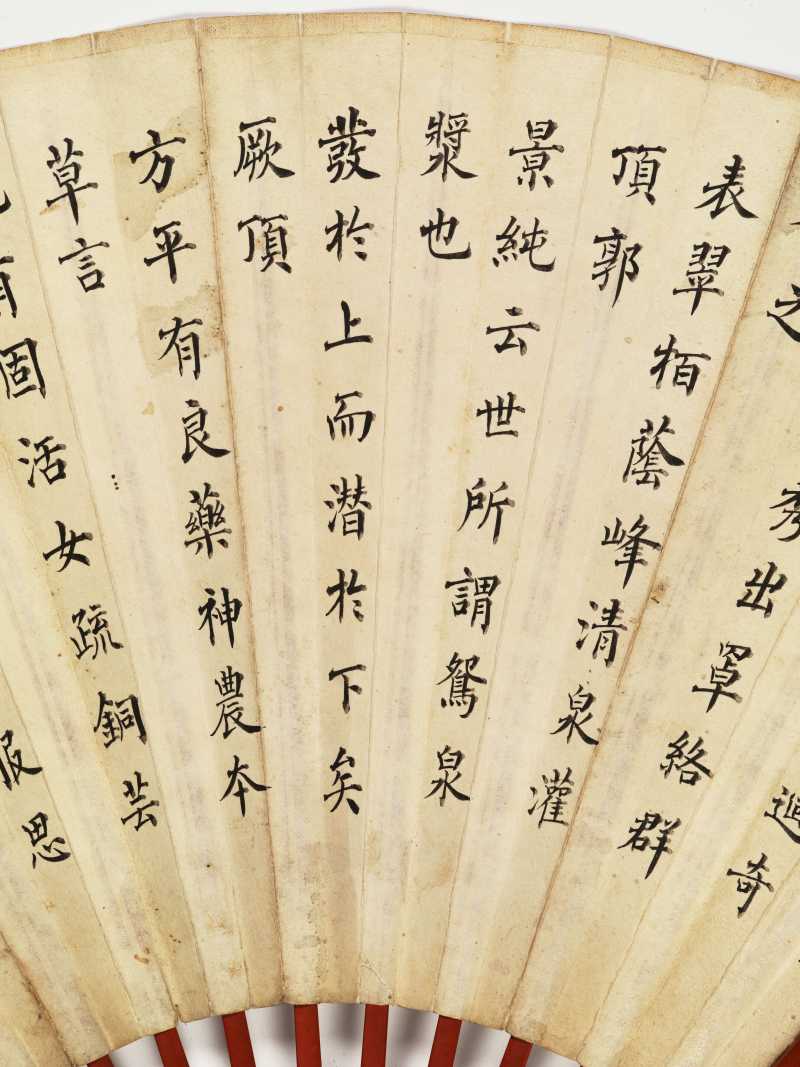 迴奇
之
秀出罩絡群
表翠栢蔭峰清泉灌
頂郭
景純云世所謂鴛泉
漿也
發於上而潜於下矣
厥頂
方平有良藥神農本
草言
有固活女疏銅芸
服思